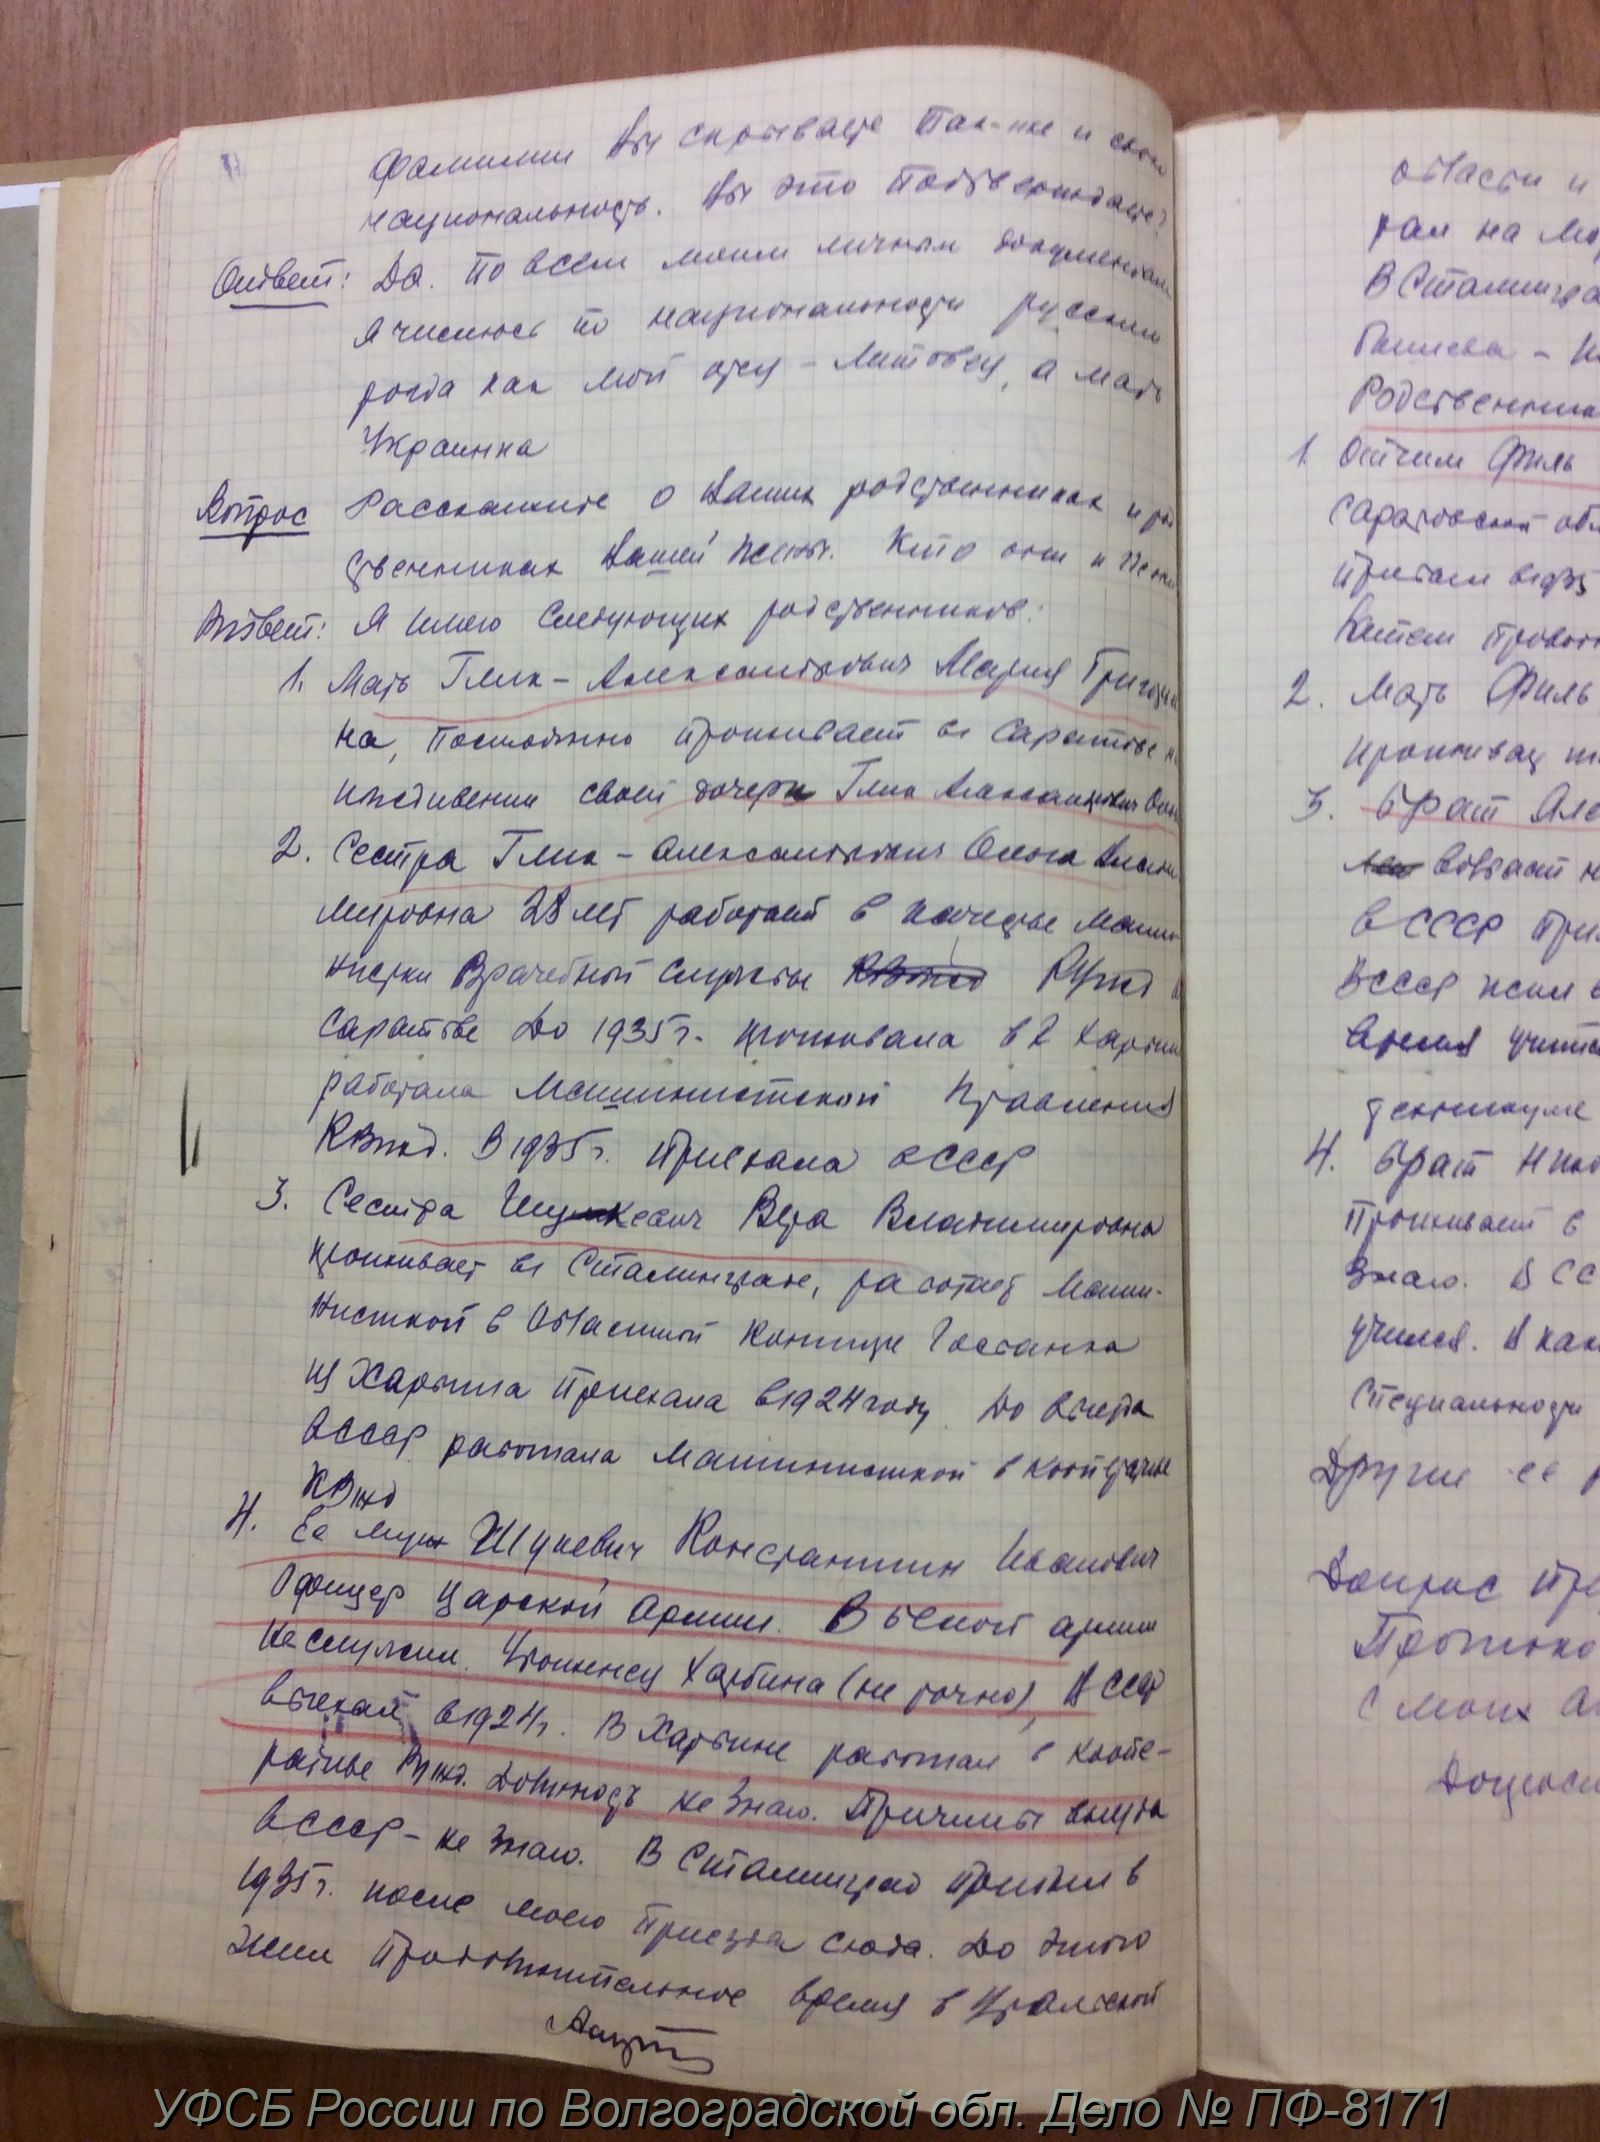 фамилии Вы скрываете так-же и свою
национальность. Вы это подтверждаете?
Ответ: Да. По всем моим личным документам
я числюсь по национальности русским
тогда как мой отец – литовец, а мать
Украинка
Вопрос Расскажите о Ваших родственниках и род
ственниках Вашей жены. Кто они и
Ответ: Я имею следующих родственников:
1. Мать Глик – Александрович Мария Григорьев
на, постоянно проживает в Саратове на
иждивении своей дочери Глик Александрович
2. Сестра Глик – Александрович Ольга Влади
мировна 28 лет работает в качестве маши
нистки Врачебной службы КВжд РУжд в
Саратове До 1935 г. проживала в г Харбине
работала машинисткой Правления
КВжд. В 1935 г. приехала в СССР
3. Сестра Шукевич Вера Владимировна
проживает в Сталинграде, работает маши-
нисткой в Областной конторе Госбанка
из Харбина приехала в 1924 году. До выезда
в СССР работала машинисткой в кооперативе
КВжд
4. Ее муж Шукевич Константин Иванович
Офицер царской армии. В белой армии
не служил. Уроженец Харбина (не точно), в СССР
выехал в 1924 г. В Харбине работал в коопе-
ративе КВжд. не знаю. Причины выезда
в СССР – не знаю. В Сталинград прибыл в
1935 г. после моего приезда сюда. До этого
жил продолжительное время в Уральской
области и
рал на
В Сталингра
Родственники
1. Отчим Филь
Саратовской обл
2. Мать Филь
3. Брат Але
возраст н
в СССР при
В СССР жил в
время учится
техникуме
4. Брат Нико
Проживает в
Знаю. В СС
учился. В как
Специальности
Другие ее р
Допрос пре
Протоко
с моих
Допроси
УФСБ России по Волгоградской обл. Дело № ПФ-8171